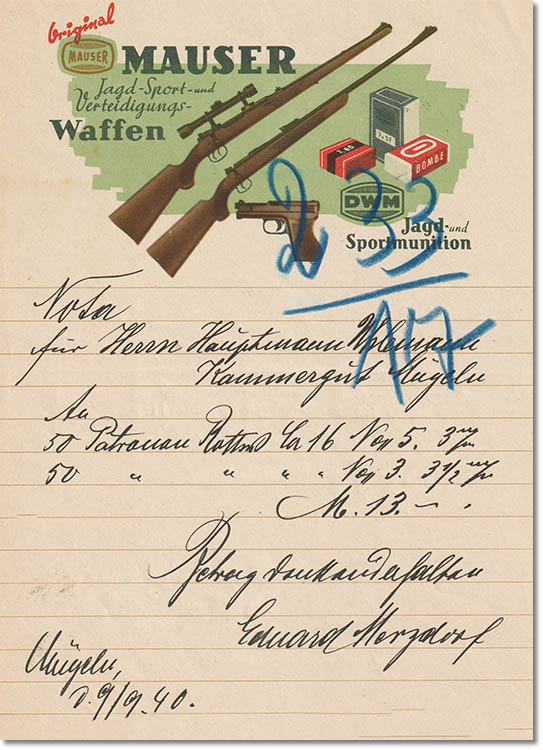 Original
MAUSER
MAUSER
Jagd-Sport-und
Verteidigungs-
Waffen
7,57
7,65
BOMBE
DWM
Jagd-und
Sportmunition
233
117
Nota
für Herrn Hauptmann
Kammergut Mügeln
An
50 Patronen Rottweil Ca 16 No 5. 3
50 " " " " No 3. 3 1/2
M. 13.-
Betrag dankend erhalten
Eduard Merzdorf
Mügeln,
d. 9/9. 40.